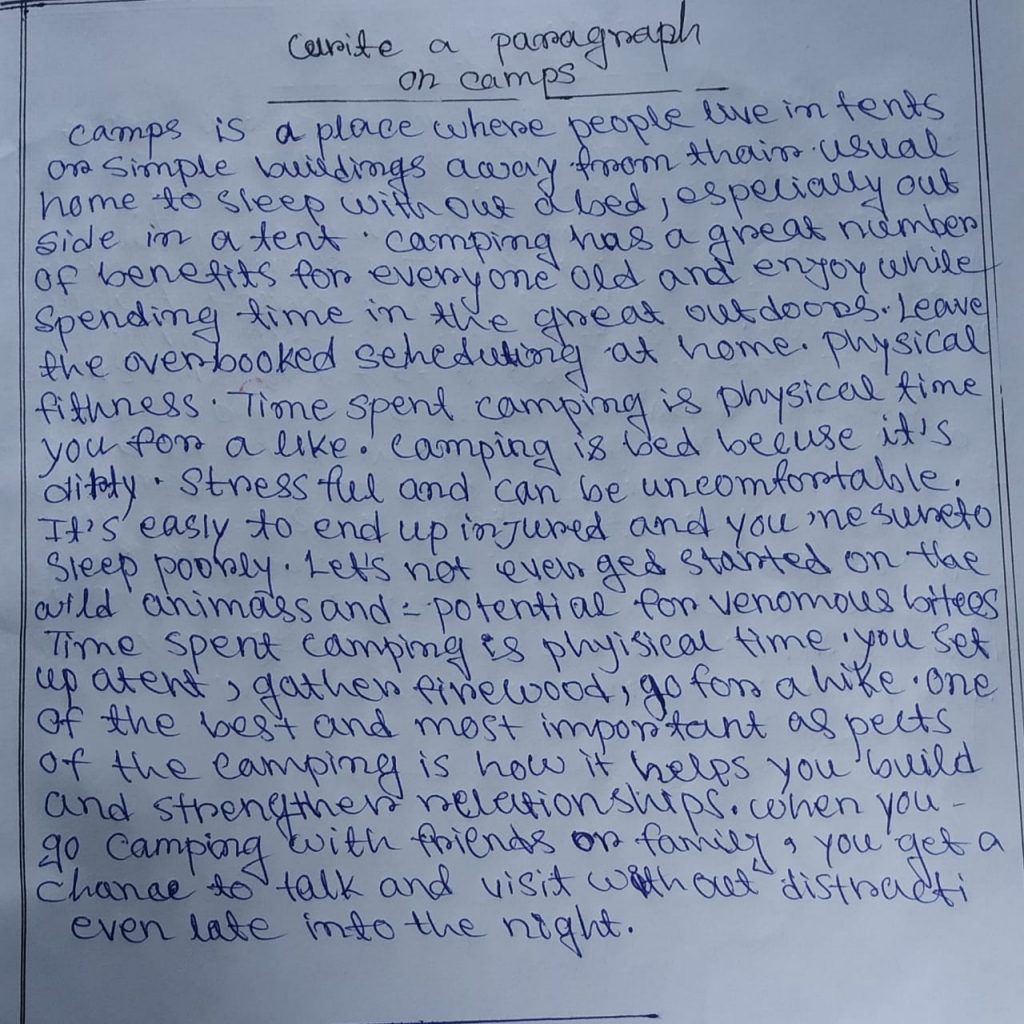 Write a paragraph
on camps
camps is a place where people live in tents
or simple buildings away from thair usual
home to sleep with out a bed, especially out
side in a tent. camping has a great number
of benefits for everyone old and enjoy while
spending time in the great outdoors. Leave
the overbooked scheduting at home. physical
fithness. Time spent camping is physical time
you for a like. camping is bed beeuse it's
ditty. stress ful and can be uncomfortable.
It's easly to end up injured and you 're sure to
sleep poorly. Let's not even ged started on the
wild animass and - potential for venomous bitees
Time spent camping is phyisical time. you set
up a tent, gather firewood, go for a hike. one
of the best and most important aspects
of the camping is how it helps you build
and strengthen relationships. when you -
go camping with friends or family, you get a
chanae to talk and visit without distracti
even late into the night.